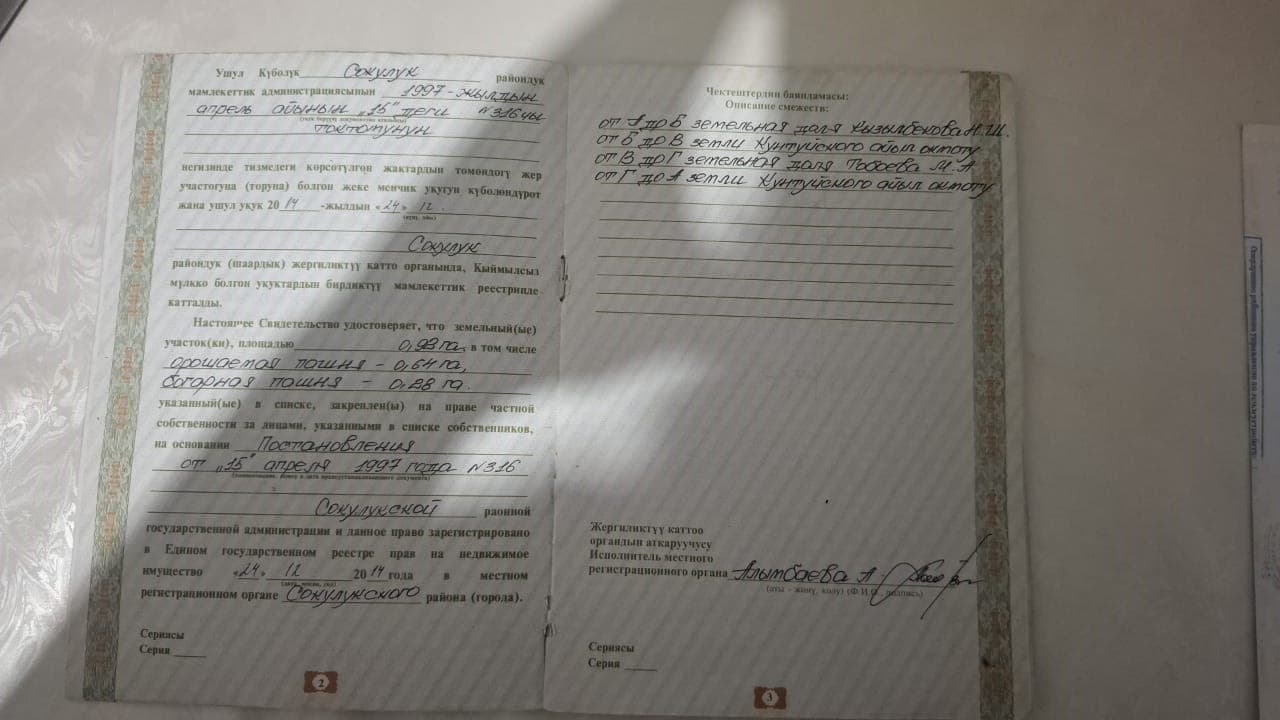 Ушул Күбөлүк Сокулук райондук
мамлекеттик администрациясынын 1997-жылдын
апрель айынын „15" деги №316 чы
токтотунун
негизинде тизмедеги көрсөтүлгөн жактардын төмөндөгү жер
участогуна (торуна) болгон жеке менчик укугун күбөлөндүрөт
жана ушул укук 2014 -жылдын «24» 12.
(күнү, айы)
Сокулук
райондук (шаардык) жергиликтүү каттоо органында, Кыймылсыз
мүлккө болгон укуктардын бирдиктүү мамлекеттик реестринде
катталды.
Настоящее Свидетельство удостоверяет, что земельный(ые)
участок(ки), площадью 0,92 га, в том числе
орошаемая пашня - 0,64 га,
богарная пашня - 0,28 га.
указанный(ые) в списке, закреплен(ы) на праве частной
собственности за лицами, указанными в списке собственников,
на основании Постановления
от „15" апреля 1997 года №316
(наименование, номер и дата правоустанавливающего документа)
Сокулукской районной
государственной администрации и данное право зарегистрировано
в Едином государственном реестре прав на недвижимое
имущество «24» 12 2014 года в местном
(число, месяц, год)
регистрационном органе Сокулукского района (города).
Сериясы
Серия
2
Чектештердин баяндамасы:
Описание смежеств:
от А до Б земельная доля Кызылбекова Н.Ш.
от Б до В земли Кунтуйского айыл окмоту
от В до Г земельная доля Тобоева М.А
от Г до А земли Кунтуйского айыл окмоту
Жергиликтүү каттоо
органдын аткаруучусу
Исполнитель местного
регистрационного органа Алымбаева А
(аты - жөнү, колу) (Ф.И.О., подпись)
Сериясы
Серия
3